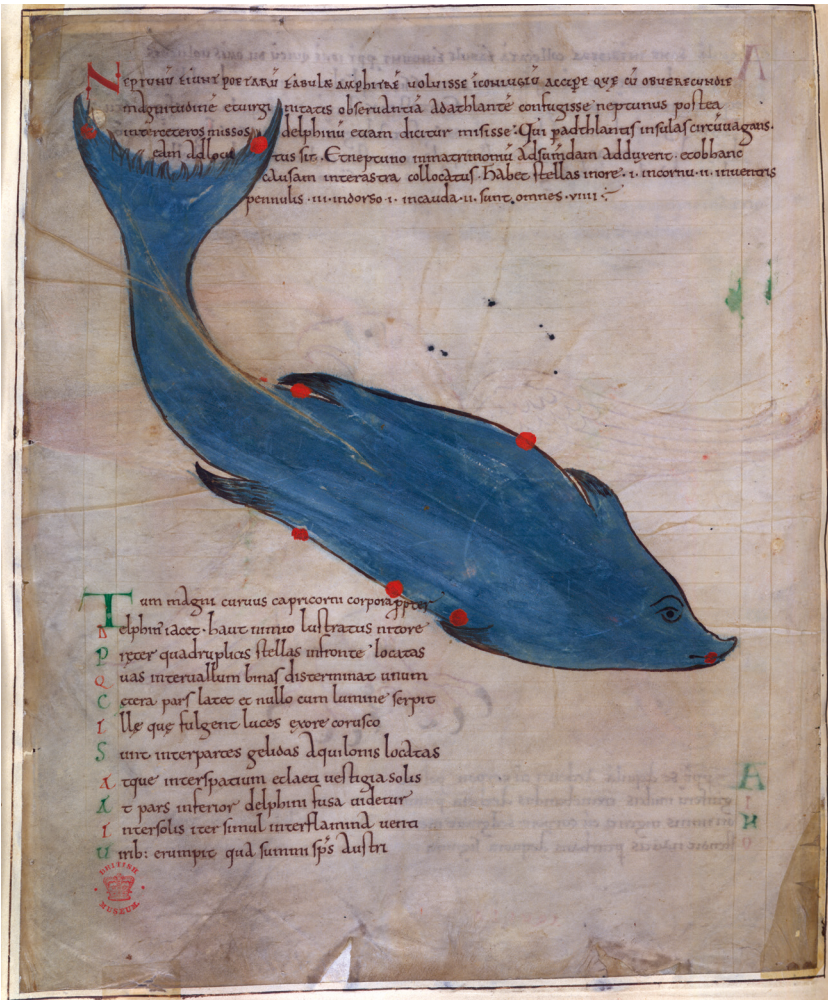 Neptunū eiunt poetarū fabulæ amphitrē uoluisse īconiugiū accipe que cū obuerecundie
magnitudinē etuirgi nitatis obseruantiā adathlantē confugisse neptunus postea
interceteros missos delphinū etiam dicitur misisse· Qui padthlantis insulas circūuagans·
eam adlocu tus sit· Etneptuno inmatrimoniū adsumdam adduxerit· etobhanc
causam interastra collocatus· habet stellas inore· i· incornu· ii· inuentris
pennulis· iii· indorso· i· incauda· ii· sunt omnes· viiii·
Tum magni curuus capricorni corpora ppter
Delphin iacet· haut nimio lustratus nitore
Preter quadruplicis stellas infronte locatas
Quas interuallum binas disterminat unum
Cetera pars latet et nullo cum lumine serpit
Ille que fulgent luces exore corusco
Sunt interpartes gelidas aquilonis locatas
Atque interspatium etlaeti uestigia solis
At pars inferior delphini fusa uidetur
Intersolis iter simul interflamina uenti
Uirib: erumpit qua summi sps austri
BRITISH
MUSEUM